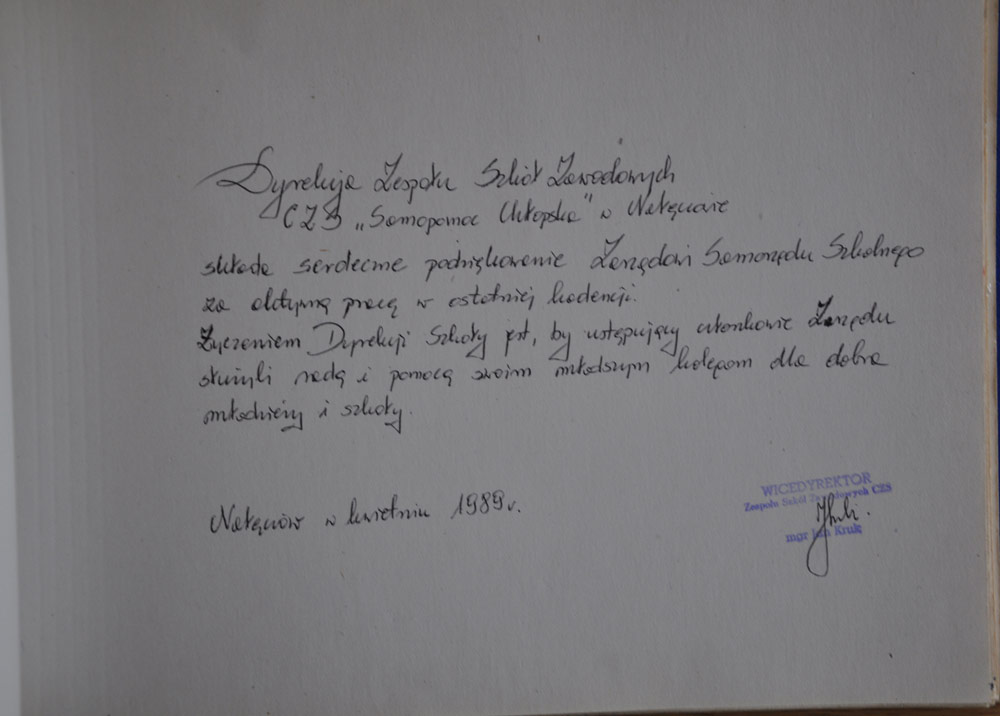 Dyrekcja Zespołu Szkół Zawodowych
CZS „Samopomoc Chłopska" w Nałęczowie
składa serdeczne podziękowanie Zarządowi Samorządu Szkolnego
za aktywną pracę w ostatniej kadencji.
Życzeniem Dyrekcji Szkoły jest, by ustępujący członkowie Zarządu
służyli radą i pomocą swoim młodszym kolegom dla dobra
młodzieży i szkoły.
Nałęczów w kwietniu 1989 r.
WICEDYREKTOR
Zespołu Szkół Zawodowych CZS
mgr Jan Kruk